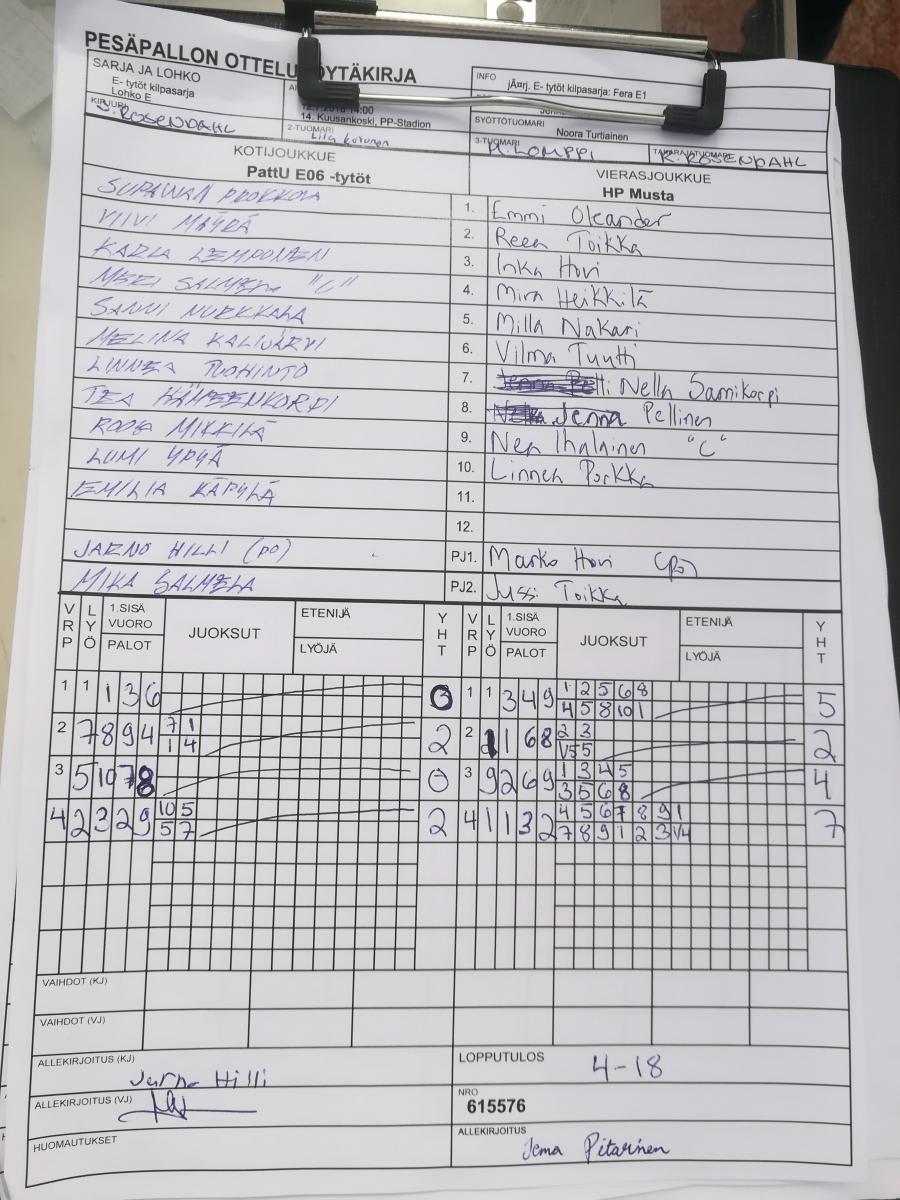 PESÄPALLON OTTELUPÖYTÄKIRJA
SARJA JA LOHKO
E- tytöt kilpasarja
Lohko E
INFO
jÄ¤rj. E- tytöt kilpasarja: Fera E1
14. Kuusankoski, PP-Stadion
SYÖTTÖTUOMARI
Noora Turtiainen
KIRJURI
J. ROSENDAHL
2-TUOMARI
3-TUOMARI
H. LOMPPI
TAKARAJATUOMARI
K. ROSENDAHL
KOTIJOUKKUE
PattU E06 -tytöt
VIERASJOUKKUE
HP Musta
1. Emmi Oleander
VIIVI MÄYRÄ 2. Reea Toikka
KARLA LEMPONEN 3. Inka Hovi
MERI SALMELA "C" 4. Mira Heikkilä
SANNI NURKKALA 5. Milla Nakari
MELINA KALIJÄRVI 6. Vilma Tuutti
LINNEA PUOHINTO 7. Nella Samikorpi
TEA HÄMEENKORPI 8. Jenna Pellinen
ROOSA MIKKILÄ 9. Nea Ihalainen "C"
LUMI YPYÄ 10. Linnea Porkka
EMILIA KÄPYLÄ 11.
12.
JARNO HILLI (PO) PJ1. Marko Hovi (po)
MIKA SALMELA PJ2. Jussi Toikka
VRP LYÖ 1.SISÄ VUORO PALOT JUOKSUT ETENIJÄ LYÖJÄ YHT VRP LYÖ 1.SISÄ VUORO PALOT JUOKSUT ETENIJÄ LYÖJÄ YHT
1 1 1 3 6 0 1 1 3 4 9 1 2 5 6 8 5
4 5 8 10 1
2 7 8 9 4 7 1 2 2 1 1 6 8 2 3 2
1 4 V5 5
3 5 10 7 8 0 3 9 2 6 9 1 3 4 5 4
3 5 6 8
4 2 3 2 9 10 5 2 4 1 1 3 2 4 5 6 7 8 9 1 7
5 7 7 8 9 1 2 3 V4
VAIHDOT (KJ)
VAIHDOT (VJ)
ALLEKIRJOITUS (KJ)
Jarno Hilli
LOPPUTULOS
4-18
ALLEKIRJOITUS (VJ)
NRO
615576
HUOMAUTUKSET
ALLEKIRJOITUS